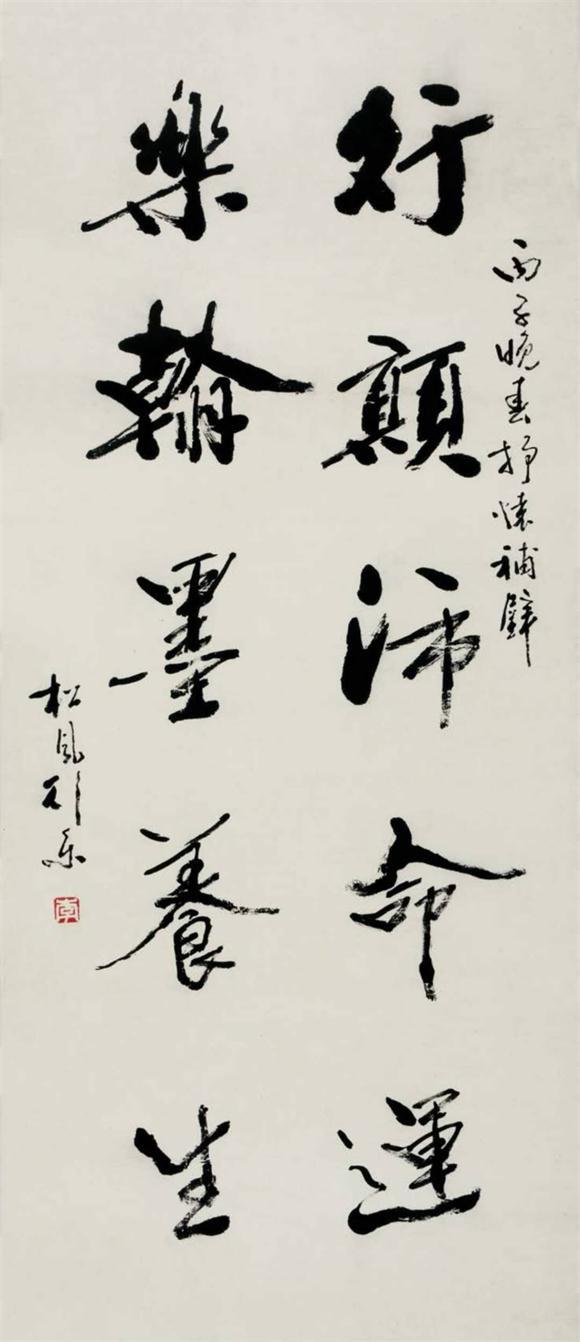 丙子晚春抒懷補壁
行顛沛命運
樂翰墨養生
松風